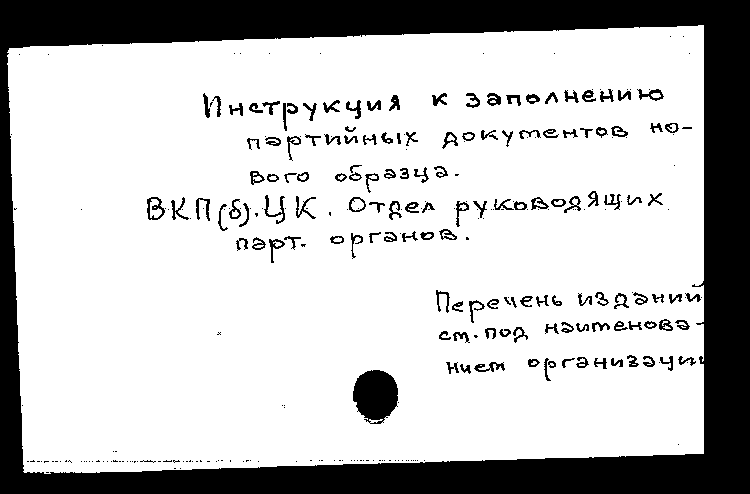 Инструкция к заполнению
партийных документов но-
вого образца.
ВКП(б). ЦК. Отдел руководящих
парт. органов.
Перечень изданий
см. под наименова-
нием организации